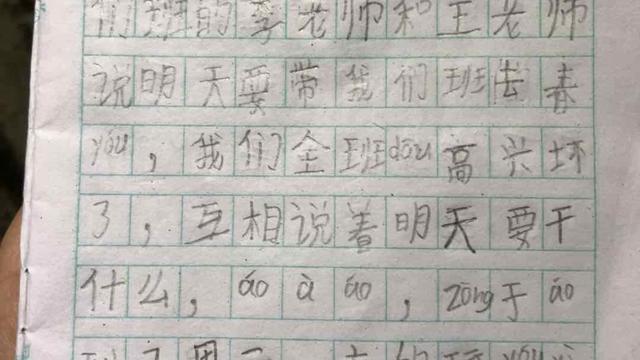 们班的李老师和王老师
说明天要带我们班去春
yóu，我们全班dōu高兴坏
了，互相说着明天要干
什么，áo à áo，zōng于áo